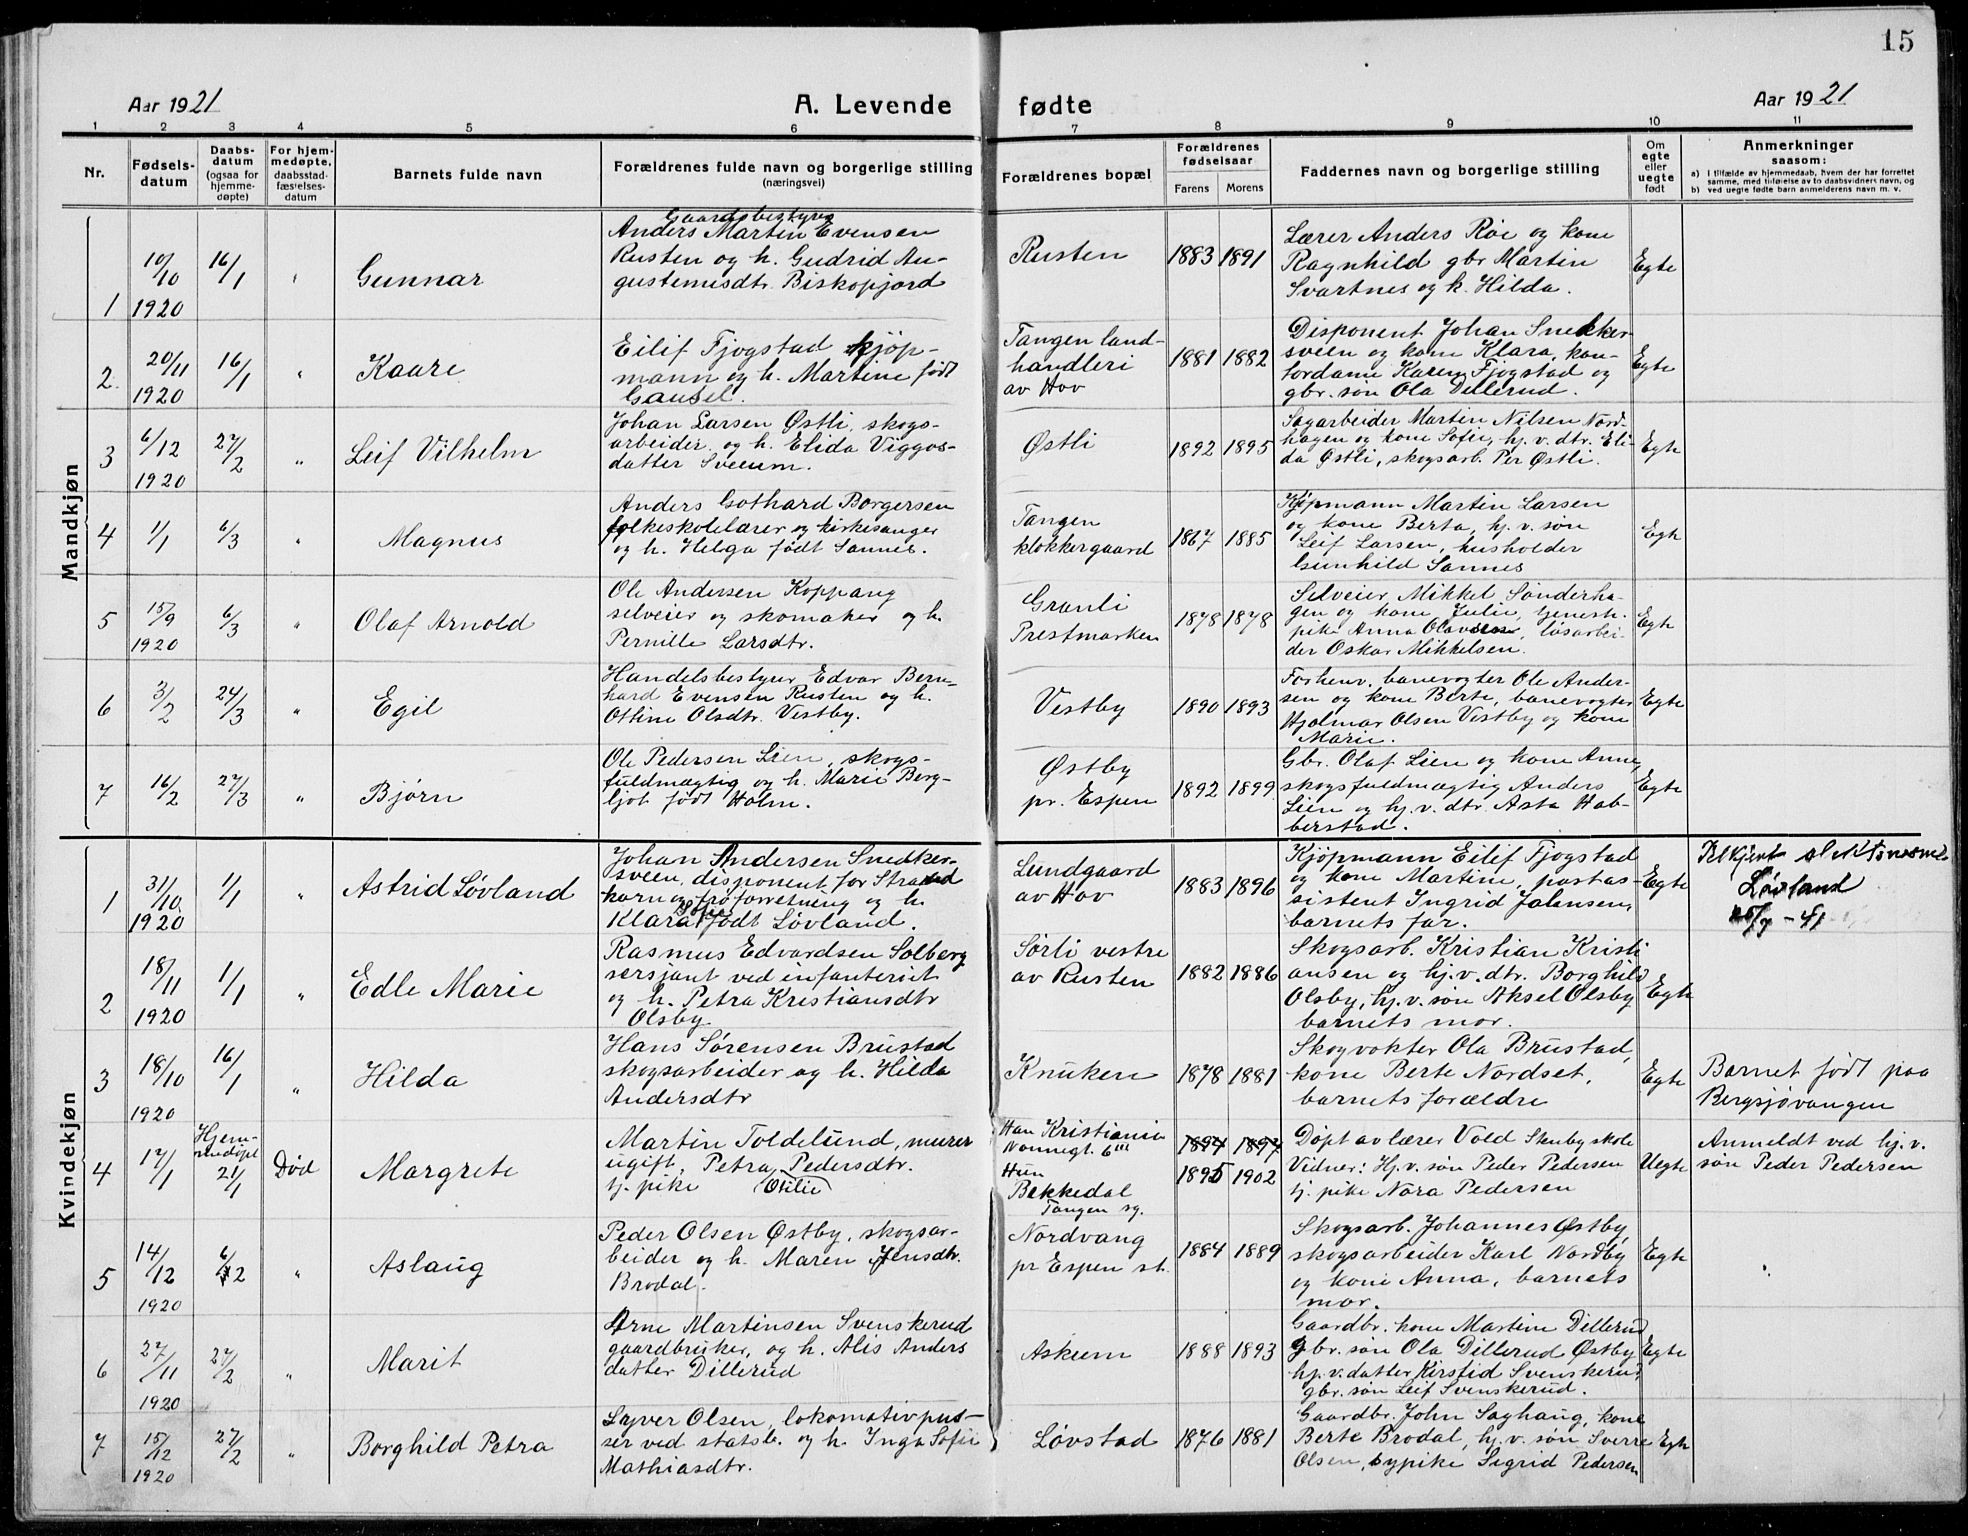 15
Aar 1921
A. Levende fødte
Aar 1921
1 2 3 4 5 6 7 8 9 10 11
Nr.
Fødsels-
datum
Daabs-
datum
(ogsaa for
hjemme-
døpte)
For hjem-
medøpte,
daabsstad-
fæstelses-
datum
Barnets fulde navn
Forældrenes fulde navn og borgerlige stilling
(næringsvei)
Forældrenes bopæl
Forældrenes
fødselsaar
Farens Morens
Faddernes navn og borgerlige stilling
Om
egte
eller
uegte
født
Anmerkninger
saasom:
a) I tilfælde av hjemmedaab, hvem der har forrettet
samme, med tilføielse av to daabsvidners navn, og
b) ved uegte fødte barn anmelderens navn m. v.
Mandkjøn
1
10/10
1920
16/1
"
Gunnar
Gaardsbestyrer
Anders Martin Evensen
Rusten og h. Gudrid Au-
gustemisdtr. Biskopjord
Rusten
1883 1891
Lærer Anders Røe og kone
Ragnhild gbr Martin
Svartnes og k. Hilda.
Egte
2
20/11
1920
16/1
"
Kaare
Eilif Fjogstad kjøp-
mann og h. Martine født
Gausel.
Tangen land-
handleri
av Hov
1881 1882
Disponent Johan Snekker-
sveen og kone Klara, kon-
tordame Karen Fjogstad og
gbr. søn Ola Dillerud.
Egte
3
6/12
1920
27/2
"
Leif Vilhelm
Johan Larsen Østli, skogs-
arbeider og h. Elida Viggos-
datter Sveum.
Østli
1892 1895
Sagarbeider Martin Nilsen Nord-
hagen og kone Sofie, hj. v. dtr. Eli-
da Østli, skogsarb. Per Østli.
Egte
4
1/1
6/3
"
Magnus
Anders Gothard Borgersen
folkeskolelærer og kirkesanger
og h. Helga født Sannes.
Tangen
klokkergaard
1867 1885
Kjøpmann Martin Larsen
og kone Berta, hj. v. søn
Leif Larsen, husholder
Gunhild Sannes
Egte
5
15/9
1920
6/3
"
Olaf Arnold
Ole Andersen Koppang
selveier og skomaker og h.
Pernille Larsdtr.
Granli
Prestmarken
1878 1878
Selveier Mikkel Sønderha-
gen og kone Julie, tjenest-
pike Anna Olavsen, løsarbei-
der Oskar Mikkelsen.
Egte
6
3/2
24/3
"
Egil
Handelsbestyrer Edvar Bern-
hard Evensen Rusten og h.
Ottine Olsdtr. Vestby.
Vestby
1890 1893
Forhenv. banevogter Ole Ander-
sen og kone Berte, banevogter
Hjalmar Olsen Vestby og kone
Marie.
Egte
7
16/2
27/3
"
Bjørn
Ole Pedersen Lien, skogs-
fuldmægtig og h. Marie Berg-
ljot født Holm.
Østby
pr. Espen
1892 1899
Gbr. Olaf Lien og kone Anne,
skogsfuldmægtig Anders
Lien og hj. v. dtr. Asta Hab-
berstad.
Egte
Kvindekjøn
1
31/10
1920
1/1
"
Astrid Løvland
Johan Andersen Snedker-
sveen, disponent for Strand
korn og frøforretning og h.
Klara Sofie født Løvland.
Lundgaard
av Hov
1883 1896
Kjøpmann Eilif Fjogstad
og kone Martine, postas-
sistent Ingrid Johansen,
barnets far.
Egte
Løvland
2
18/11
1920
1/1
"
Edle Marie
Rasmus Edvardsen Solberg
sersjant ved infanteriet
og h. Petra Kristiansdtr
Olsby.
Sørli vestre
av Rusten
1882 1886
Skogsarb. Kristian Kristi
ansen og hj. v. dtr. Borghild
Olsby, hj. v. søn Aksel Olsby
barnets mor.
Egte
3
18/10
1920
16/1
"
Hilda
Hans Sørensen Brustad
skogsarbeider og h. Hilda
Andersdtr
Knuken
1878 1881
Skogvokter Ola Brustad,
kone Berte Nordset,
barnets forældre
Egte
Barnet født paa
Bergsjøvangen
4
17/1
Hjem-
medøpt
21/1
Død
Margrete
Martin Toldelund, murer
ugift, Petra Pedersdtr.
tj. pike Otilie
Han Kristiania
Nonnegt. 6 III
Hun
Bekkedal
Tangen sg.
1894 1897
1895 1902
Døpt av lærer Vold Skuby skole
Vidner: Hj. v. søn Peder Pedersen
tj. pike Nora Pedersen
Uegte
Anmeldt ved hj. v.
søn Peder Pedersen
5
14/12
1920
6/2
"
Aslaug
Peder Olsen Østby, skogsar-
beider og h. Maren Jensdtr.
Brodal.
Nordvang
pr Espen st.
1884 1889
Skogsarb. Johannes Østby,
skogsarbeider Karl Nordby
og kone Anna, barnets
mor.
Egte
6
27/11
1920
27/2
"
Marit
Arne Martinsen Svenskerud
gaardbruker, og h. Alis Anders
datter Dillerud
Askeem
1888 1893
Gaardbr. kone Martine Dillerud
gbr. søn Ola Dillerud Østby
hj. v. datter Kirstid Svenskerud
gbr. søn Leif Svenskerud.
Egte
7
15/12
1920
27/2
"
Borghild Petra
Syver Olsen, lokomotivpus-
ser ved statsb. og h. Inga Sofie
Mathiasdtr.
Løvstad
1876 1881
Gaardbr. John Saghaug, kone
Berte Brodal, hj. v. søn Sverre
Olsen, sypike Sigrid Pedersen
Egte